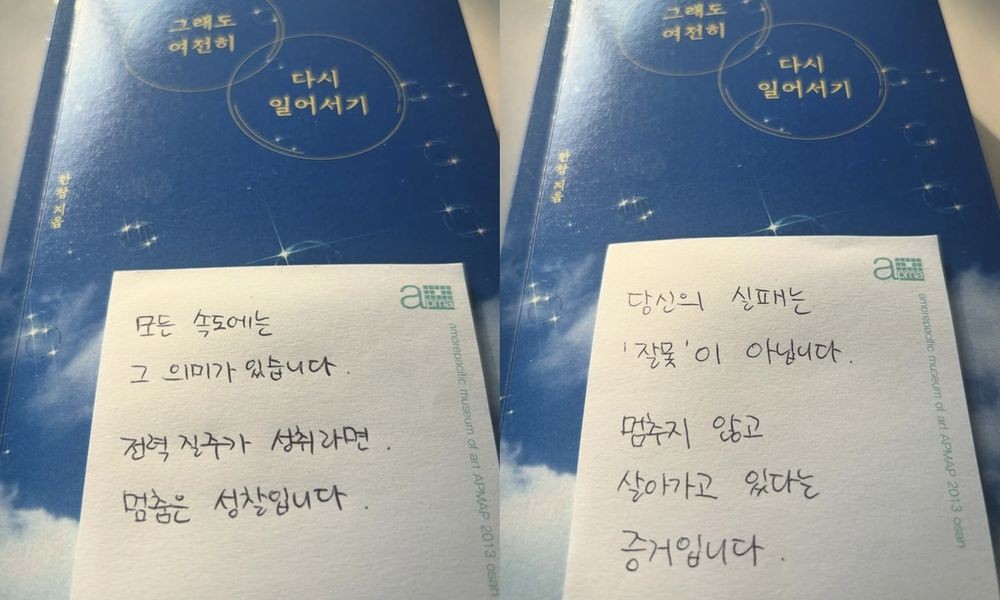 그래도
여전히
다시
일어서기
한창 지음
apma
amorepacific museum of art APMAP 2013 osan
모든 속도에는
그 의미가 있습니다.
전력 질주가 성취라면.
멈춤은 성찰입니다.
그래도
여전히
다시
일어서기
한창 지음
apma
amorepacific museum of art APMAP 2013 osan
당신의 실패는
'잘못'이 아닙니다.
멈추지 않고
살아가고 있다는
증거입니다.